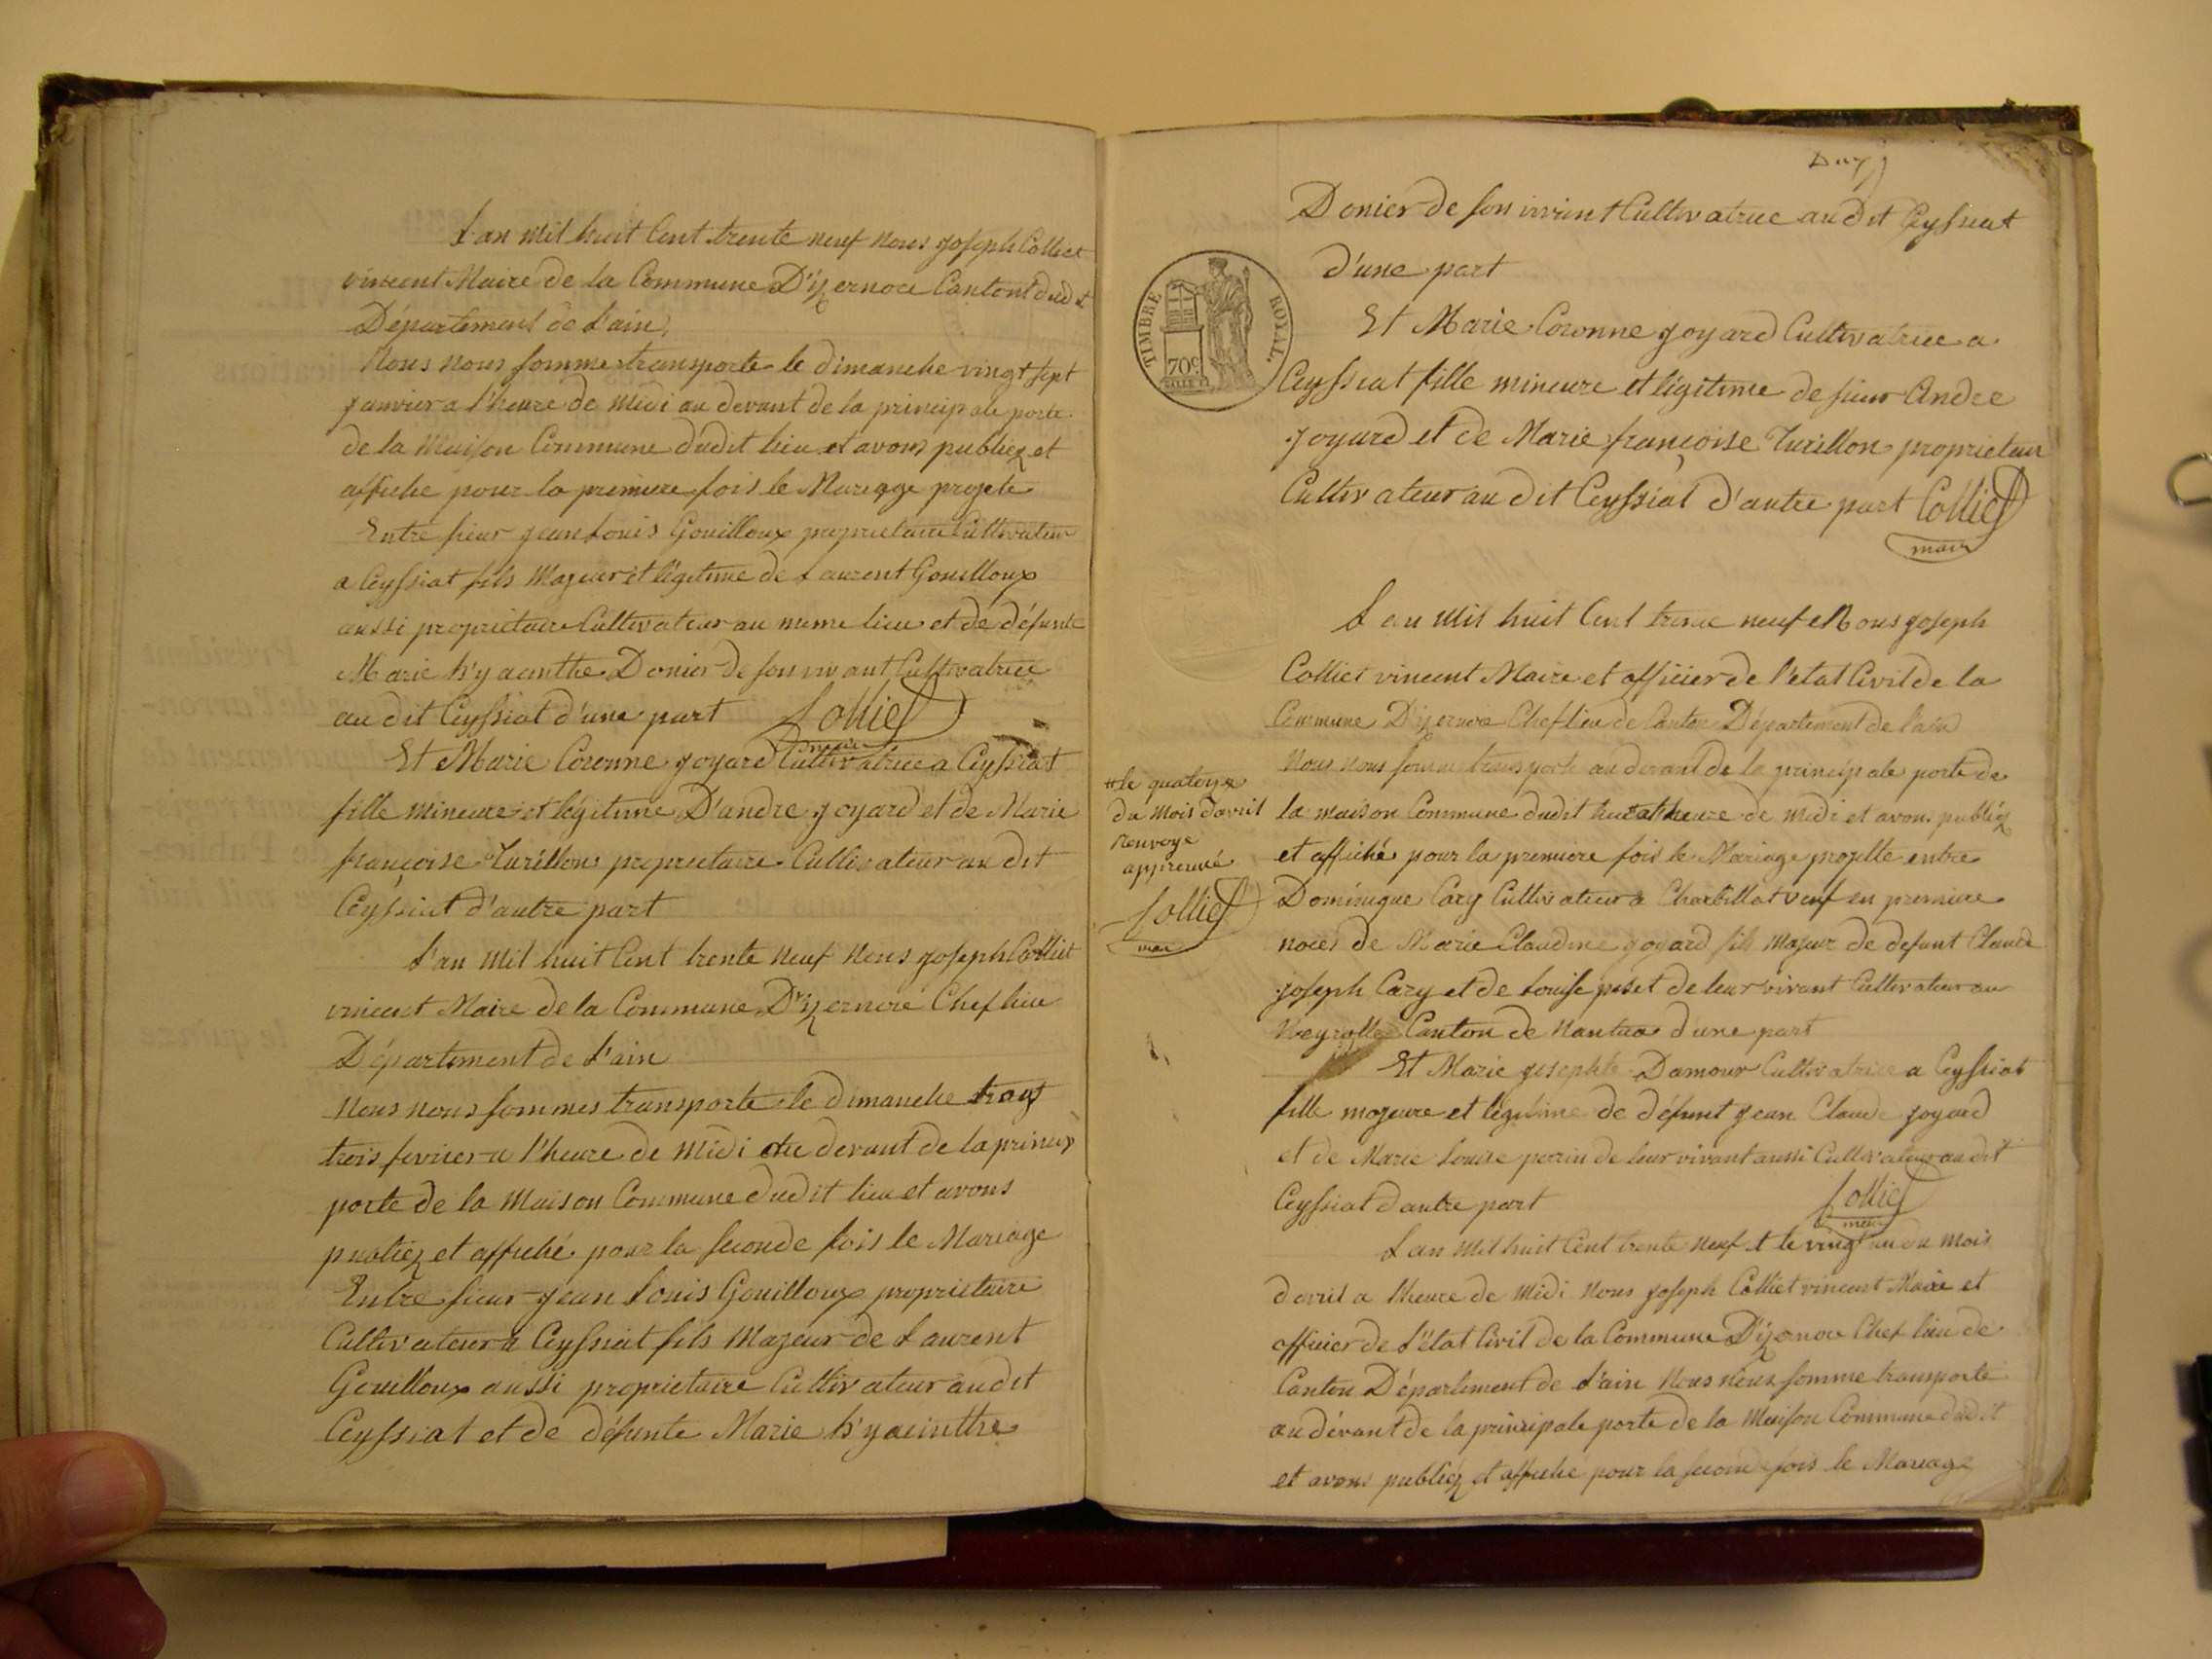 L'an mil huit Cent trente neuf nous joseph Colliet
vincent Maire de la Commune D'izernore Canton dudit
Département de L'ain
Nous nous somme transporte le dimanche vingt sept
janvier a l'heure de midi au devant de la principale porte
de la maison Commune dudit lieu et avons publiez et
affiche pour la premiere fois le Mariage projete
Entre sieur jean Louis Gouilloux proprietaire Cultivateur
a Ceyssiat fils Majeur et légitime de Laurent Gouilloux
aussi proprietaire Cultivateur au meme lieu et de défunte
Marie h'yacinthe Donier de son vivant Cultivatrice
au dit Ceyssiat d'une part Colliet
maire
Et Marie Coronne joyard Cultivatrice a Ceyssiat
fille mineure et légitime D'andre joyard et de Marie
françoise Turillon proprietaire Cultivateur au dit
Ceyssiat d'autre part
L'an mil huit Cent trente neuf nous joseph Colliet
vincent Maire de la Commune D'izernore Chef lieu
Département de L'ain
nous nous sommes transporte le dimanche
trois fevrier a l'heure de midi au devant de la princip
porte de la maison Commune dudit lieu et avons
publiez et affiché pour la seconde fois le Mariage
Entre sieur jean Louis Gouilloux proprietaire
Cultivateur a Ceyssiat fils Majeur de Laurent
Gouilloux aussi proprietaire Cultivateur audit
Ceyssiat et de défunte Marie h'yacinthe
Donier de son vivant Cultivatrice audit Ceyssiat
d'une part
TIMBRE ROYAL.
70c
Et Marie Coronne joyard Cultivatrice a
Ceyssiat fille mineure et légitime de sieur Andre
joyard et de Marie françoise Turillon proprietair
Cultivateur au dit Ceyssiat d'autre part Colliet
maire
L'an mil huit Cent trente neuf Nous joseph
Colliet vincent Maire et officier de l'etat Civil de la
Commune D'izernore Chef lieu de Canton Département de l'ain
Nous nous somme transporte au devant de la principale porte de
#le quatorze
du mois d'avril
Renvoye
approuvé
Colliet
maire
la maison Commune dudit lieu a l'heure de midi et avons publiéz
et affiché pour la premiere fois le Mariage projette entre
Dominique Cary Cultivateur a Charbillat veuf en premiere
noces de Marie Claudine joyard fils majeur de defunt Claude
joseph Cary et de Louise piset de leur vivant Cultivateur au
Neyrolle Canton de Nantua d'une part
Et Marie josephte Damour Cultivatrice a Ceyssiat
fille majeure et légitime de défunt jean Claude joyard
et de Marie Louise perrin de leur vivant aussi Cultivateur au dit
Ceyssiat d'autre part Colliet
maire
L'an mil huit Cent trente neuf et le vingt un du mois
d'avril a l'heure de midi nous joseph Colliet vincent Maire et
officier de L'état Civil de la Commune D'izernore Chef lieu de
Canton Département de L'ain Nous nous somme transporte
au dévant de la principale porte de la Maison Commune dudit
et avons publiéz et affiche pour la second fois le Mariage